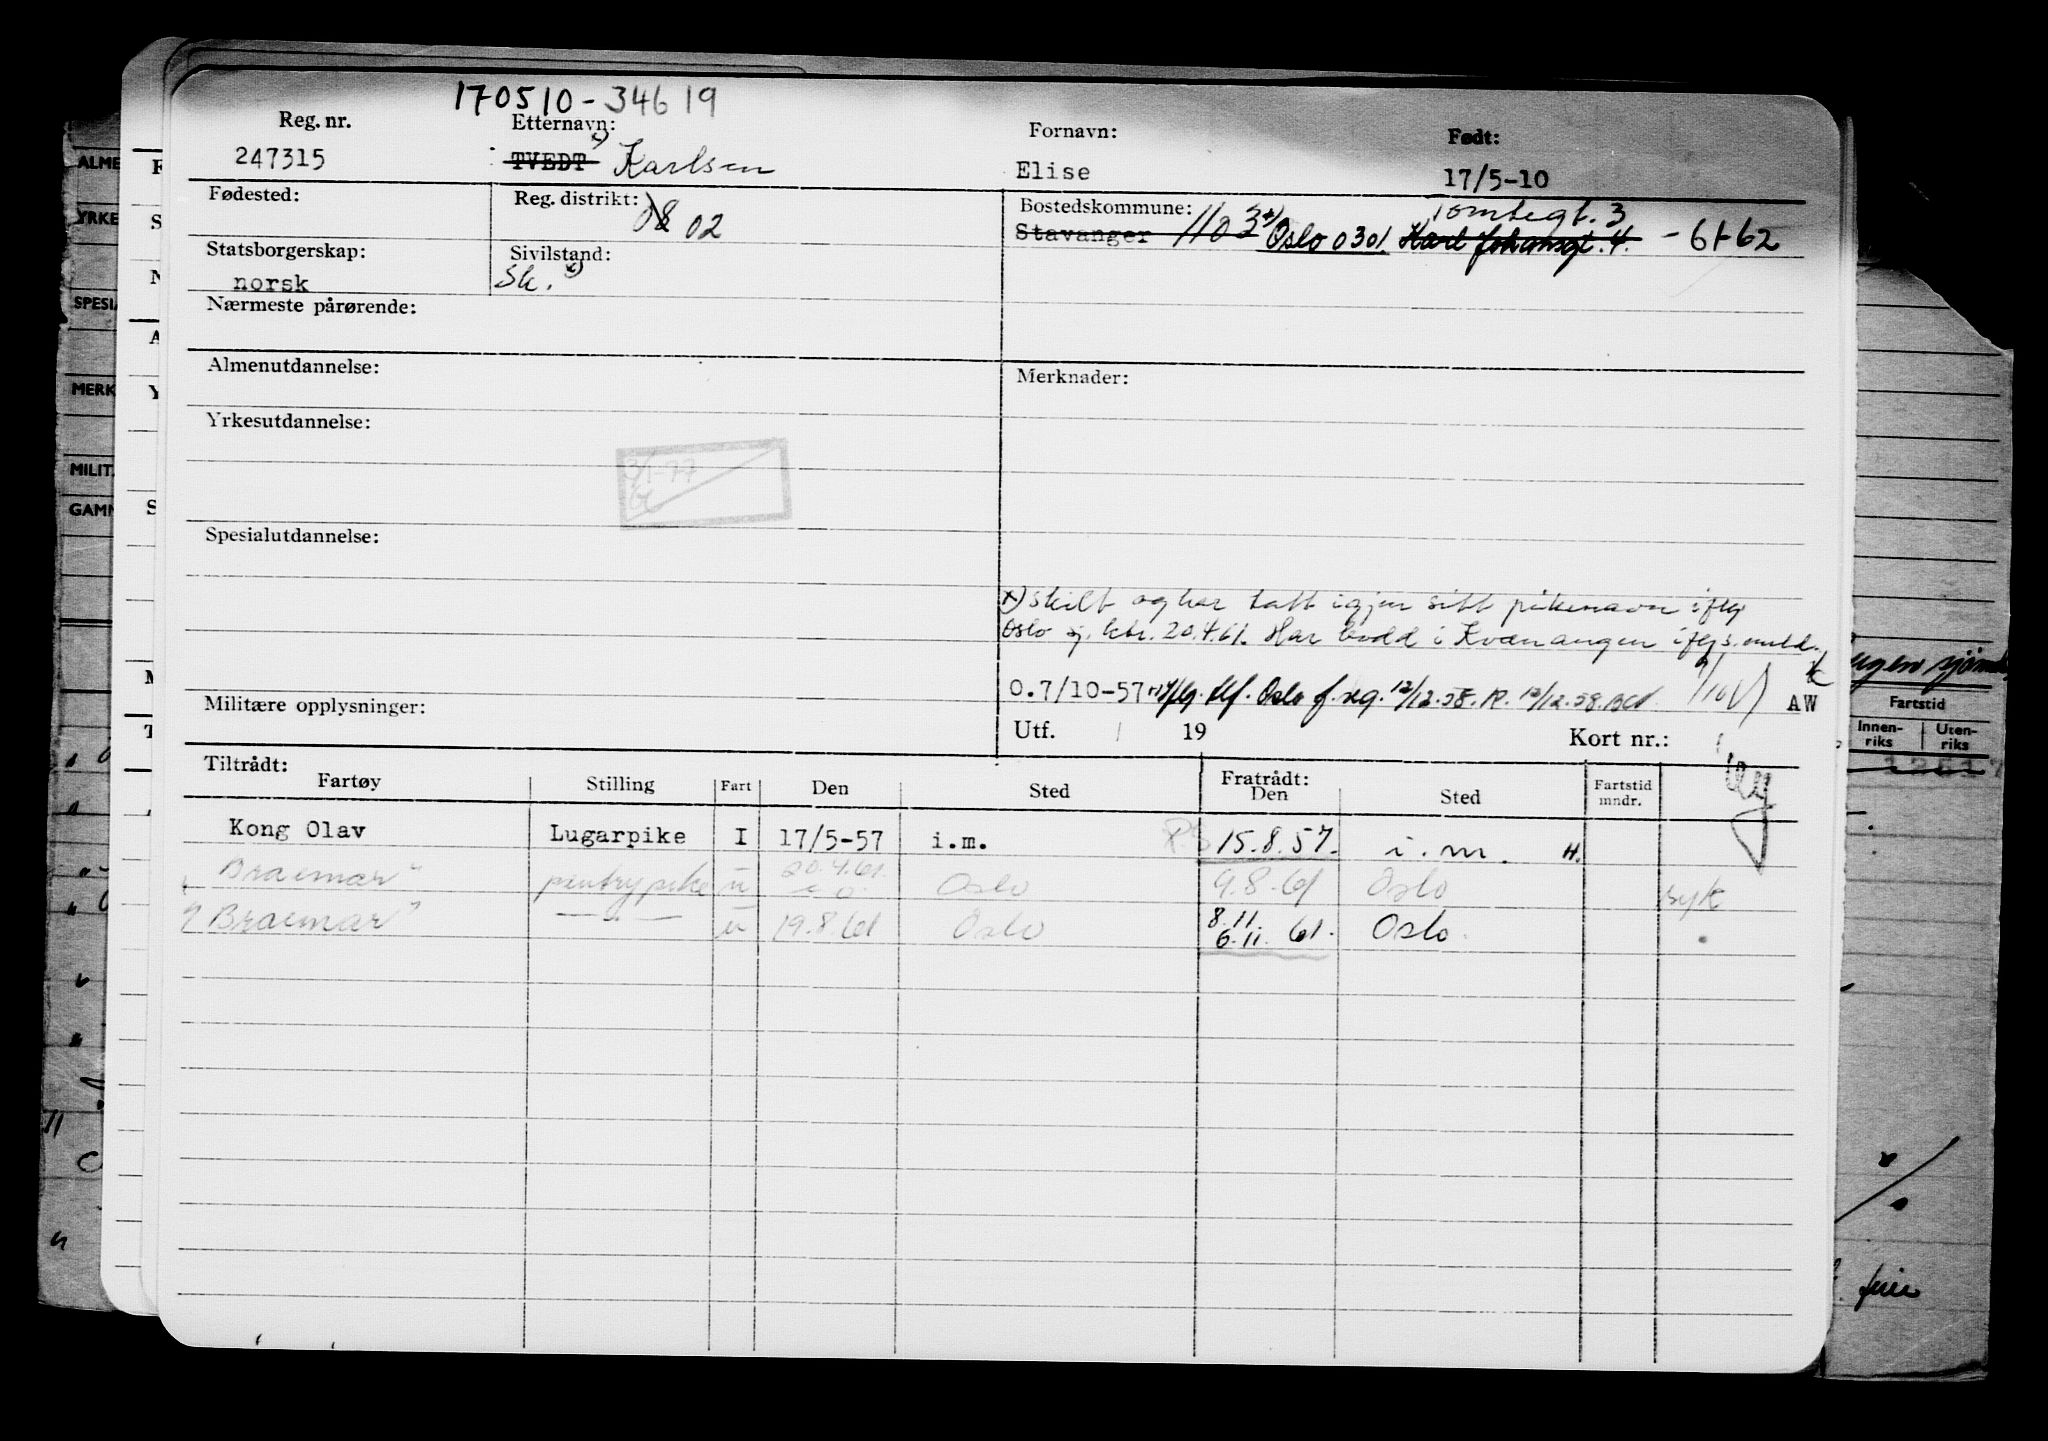 170510-34619
Reg. nr. Etternavn: Fornavn: Født:
247315 TVEDT x) Karlsen Elise 17/5-10
Fødested: Reg. distrikt: 08 02 Bostedskommune: Tomtegt. 3
Stavanger 1103 x) Oslo 0301 Karl Johansgt. 4. - 61-62
Statsborgerskap: Sivilstand:
norsk Sk. x)
Nærmeste pårørende:
Almenutdannelse: Merknader:
Yrkesutdannelse:
3/1-77
Spesialutdannelse:
x) Skilt og har tatt igjen sitt pikenavn iflg
Oslo sj. ktr. 20.4.61. Har bodd i Kvænangen iflg s. meld.
O.7/10-57 Oslo f. reg. 12/12.58. R. 12/12.58. AW
Militære opplysninger:
Utf. 19 Kort nr.:
Tiltrådt: Fratrådt:
Fartøy Stilling Fart Den Sted Den Sted Fartstid mndr.
Kong Olav Lugarpike I 17/5-57 i.m. 15.8.57. i.m. H.
"Braemar" pentrypike u 20.4.61 Oslo 9.8.61 Oslo syk
"Braemar" — " — u 19.8.61 Oslo 8.11. 6.11. 61. Oslo.
ALME
YRKE
SPESIA
MERK
MILIT
GAMM
F
S
N
A
Y
S
M
T
Fartstid
Innen-riks Uten-riks